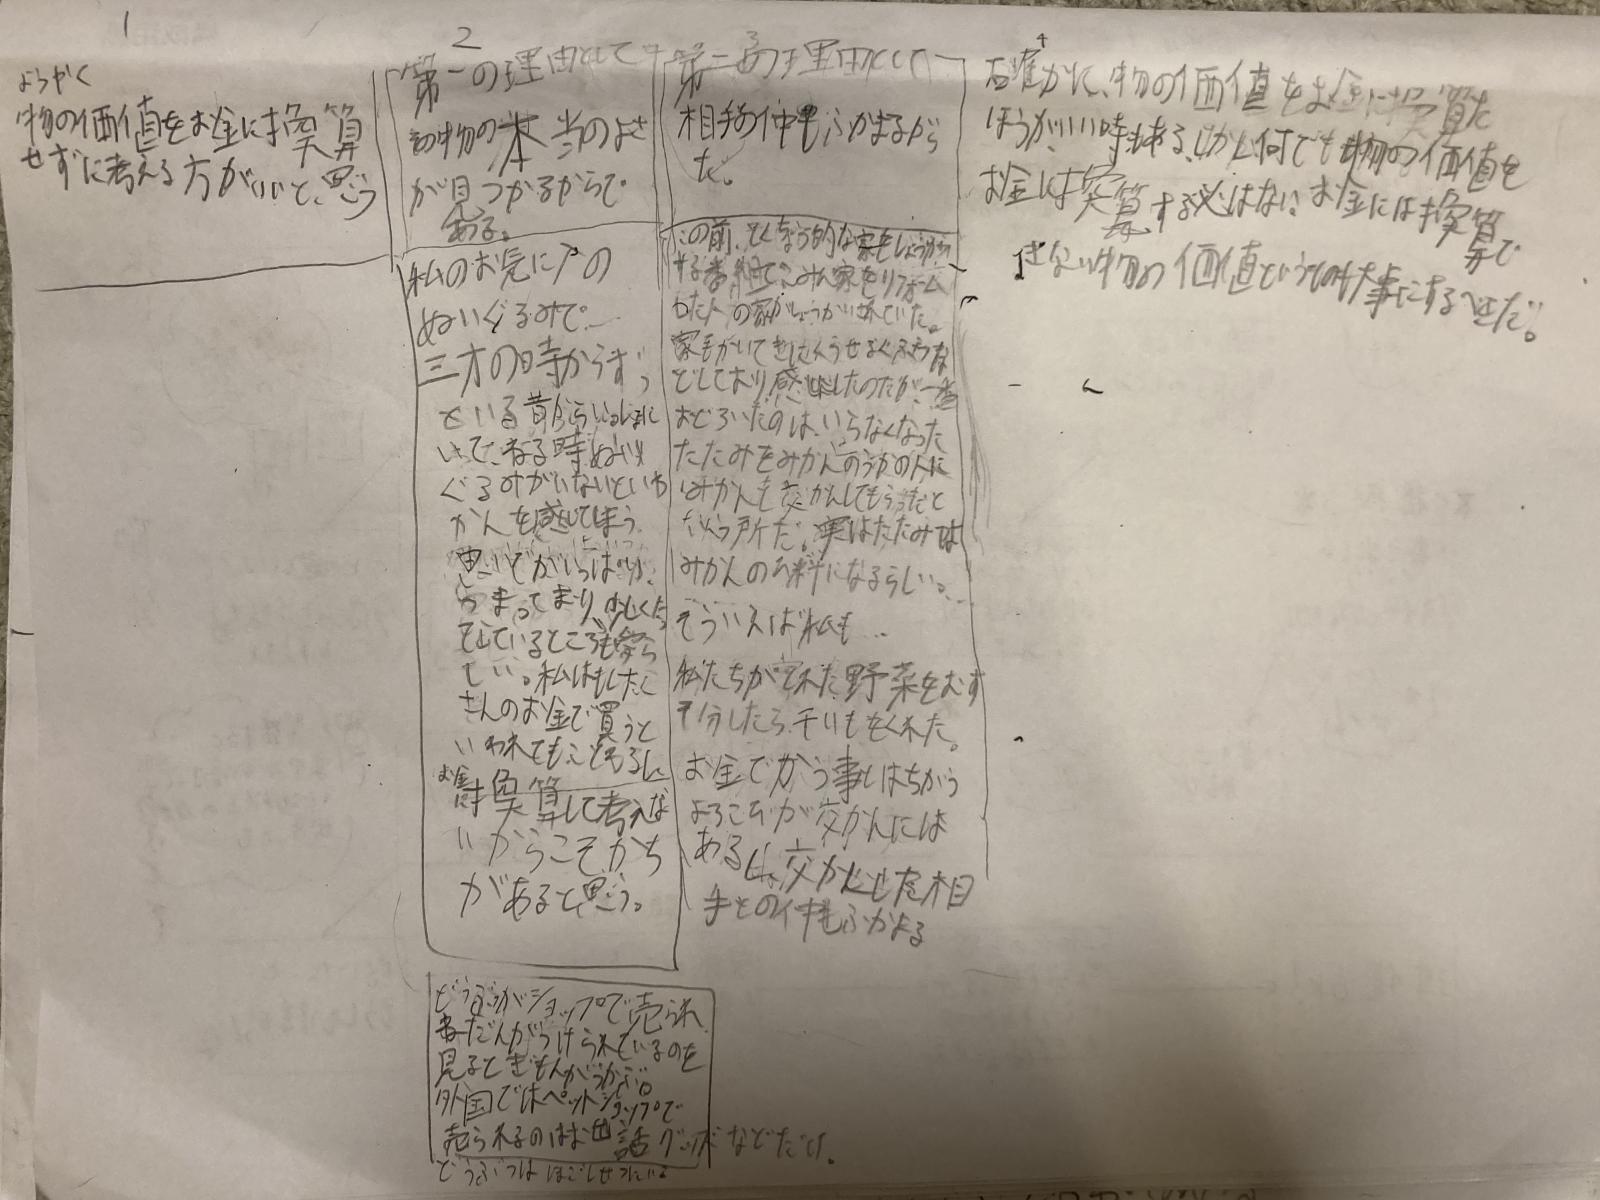 1
ようやく
物の価値をお金に換算
せずに考える方がいいと、思う
2
第一の理由として
物の本当のよさ
が見つかるからで
ある。
私のお気に入りの
ぬいぐるみで
三才の時からずっ
といる昔からいっしょに
いて、ねる時ぬい
ぐるみがいないといわ
かんを感じてしまう
思いでがいっぱい
つまっており、少しくた
ってしているところも愛ら
しい。私はもしたく
さんのお金で買うと
いわれてもことわるし
お金に換算して考えな
いからこそかち
があると思う。
どうぶつがショップで売られ
ねだんがつけられているのを
見るとぎもんがうかぶ。
外国ではペットショップで
売られるのはお世話グッズなどだけ。
どうぶつはほごしせつにいる
3
第二の理由として
相手の仲もふかまるから
だ。
この前、
する番組で、こみん家をリフォーム
した人の家がしょうかいされていた。
どしており、感心したのだが、一番
おどろいたのは、いらなくなった
たたみをみかんのうかの人に
みかんと交かんしてもらったと
いう所だ。実はたたみは
みかんのひ料になるらしい。
そういえば私も…
私たちが
野菜をおす
そ分したら、干いもをくれた。
お金でかう事とはちがう
よろこびが交かんには
あるし、交かんした相
手との仲もふかまる
4
確かに、物の価値をお金に換算した
ほうが、いい時もある、しかし何でも物の価値を
お金に換算する必はない。お金には換算で
きない物の価値というものも大事にするべきだ。